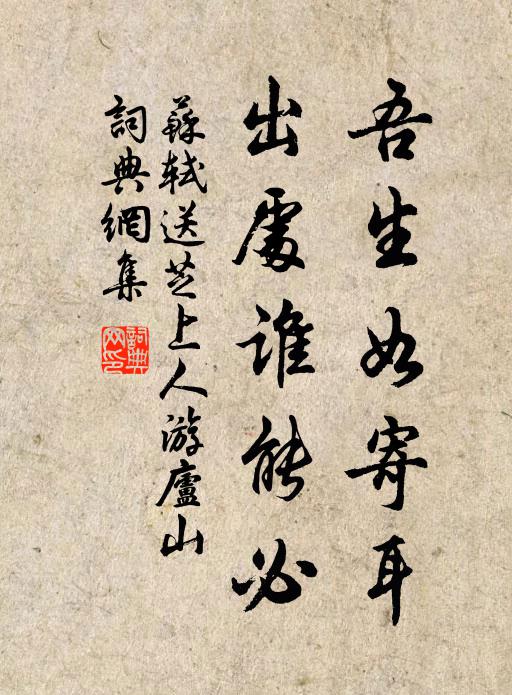 吾生如寄耳
出處誰能必
蘇軾送芝上人游廬山
詞典網集
詞典网印